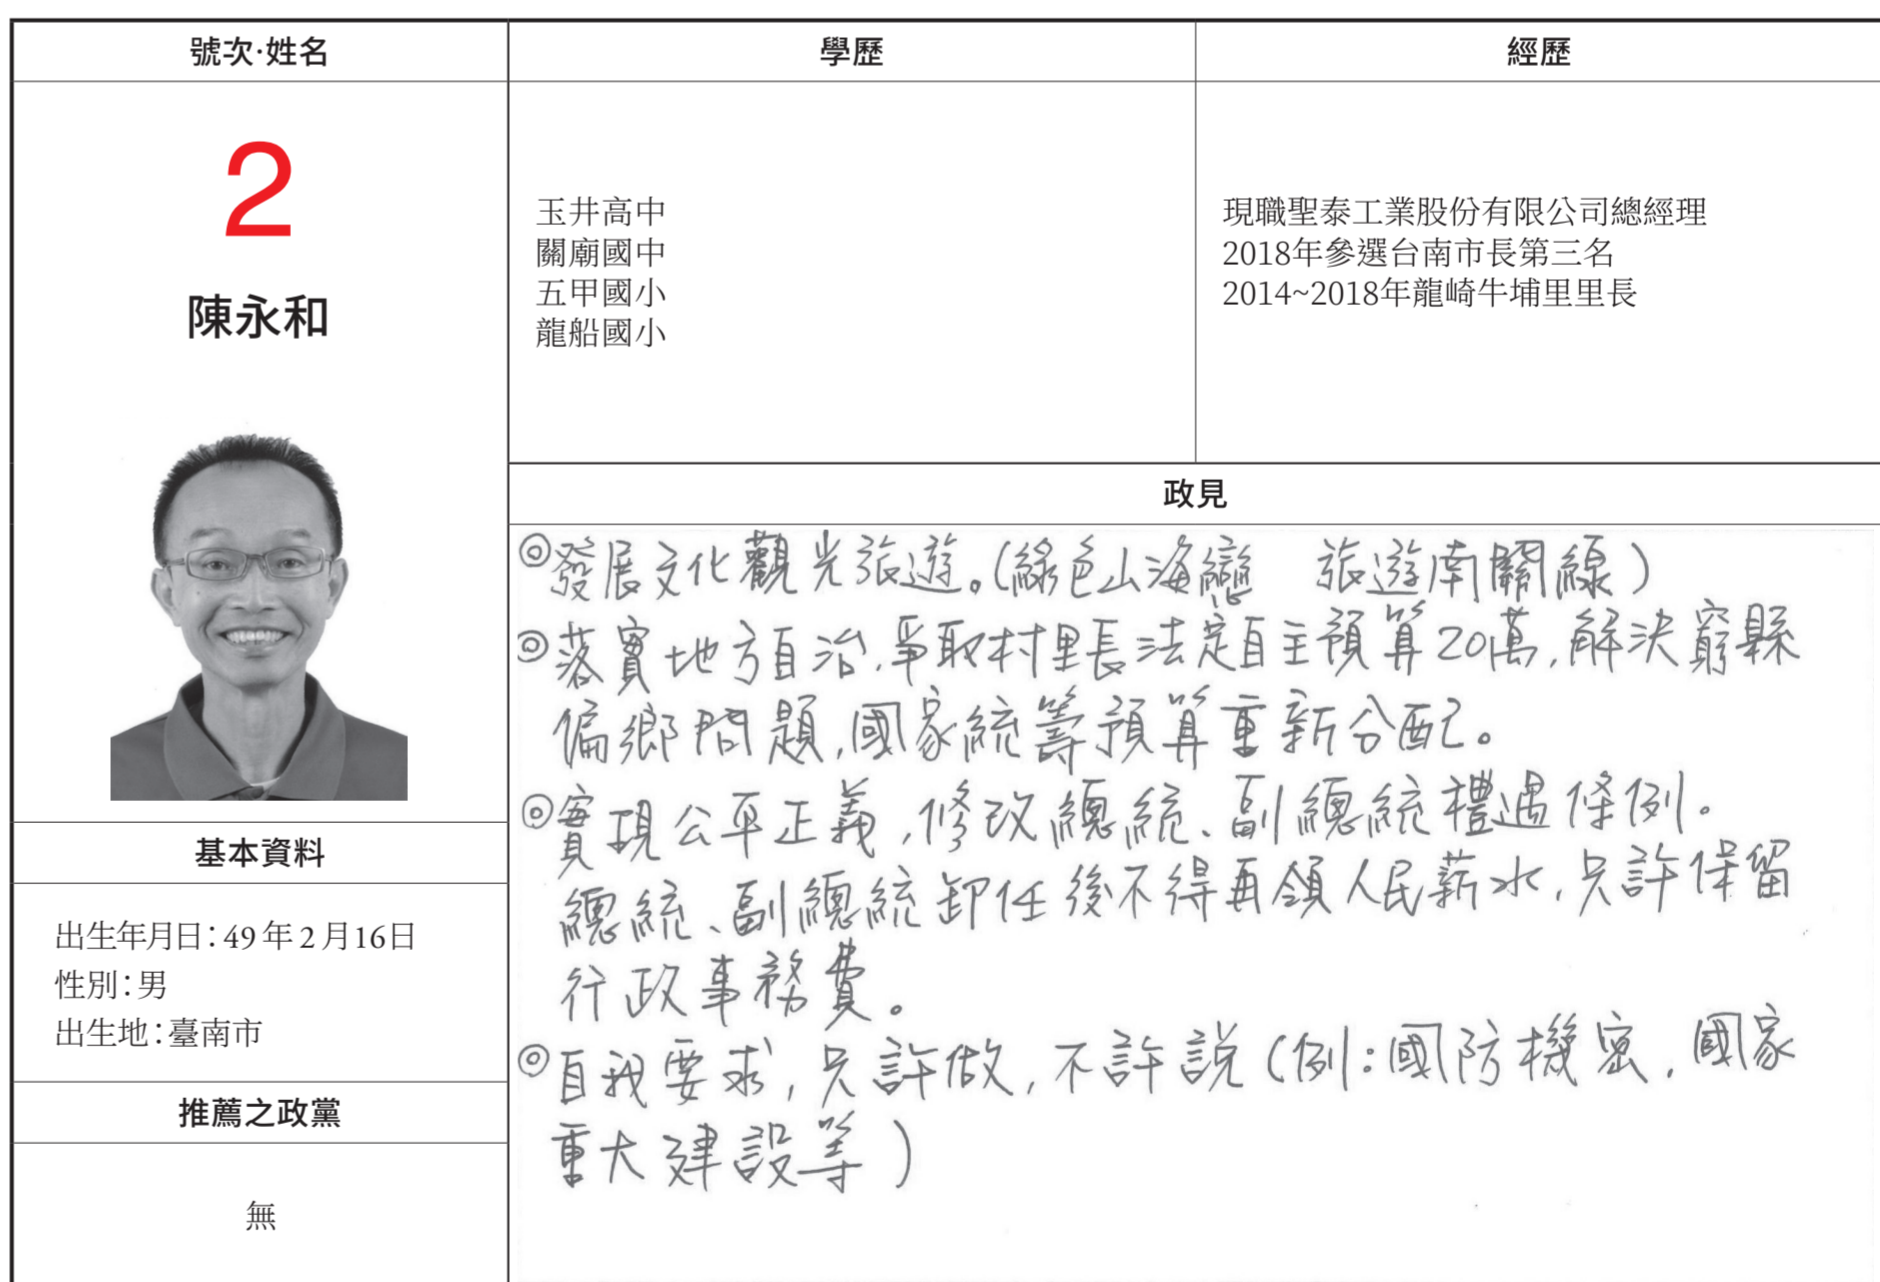 號次·姓名
2
陳永和
基本資料
出生年月日：49年2月16日
性別：男
出生地：臺南市
推薦之政黨
無
學歷
玉井高中
關廟國中
五甲國小
龍船國小
經歷
現職聖泰工業股份有限公司總經理
2018年參選台南市長第三名
2014~2018年龍崎牛埔里里長
政見
◎發展文化觀光旅遊。(綠色山海戀　旅遊南關線)
◎落實地方自治,爭取村里長法定自主預算20萬,解決窮縣
偏鄉問題,國家統籌預算重新分配。
◎實現公平正義,修改總統、副總統禮遇條例。
總統、副總統卸任後不得再領人民薪水,只許保留
行政事務費。
◎自我要求,只許做,不許說(例:國防機密.國家
重大建設等)